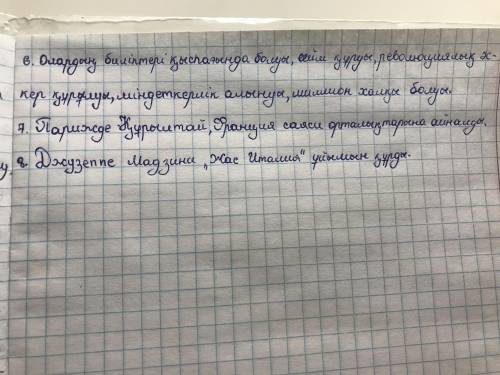 6. Олардың биліктері қыспағында болуы, сейм құрды, революциялық х-
кер құрылуы, міндеткерлік алынуы, миллион халқы болуы.
7. Парижде Құрылтай, Франция саяси орталықтарына айналды.
8. Джузеппе Мадзини "Жас Италия" ұйымын құрды.